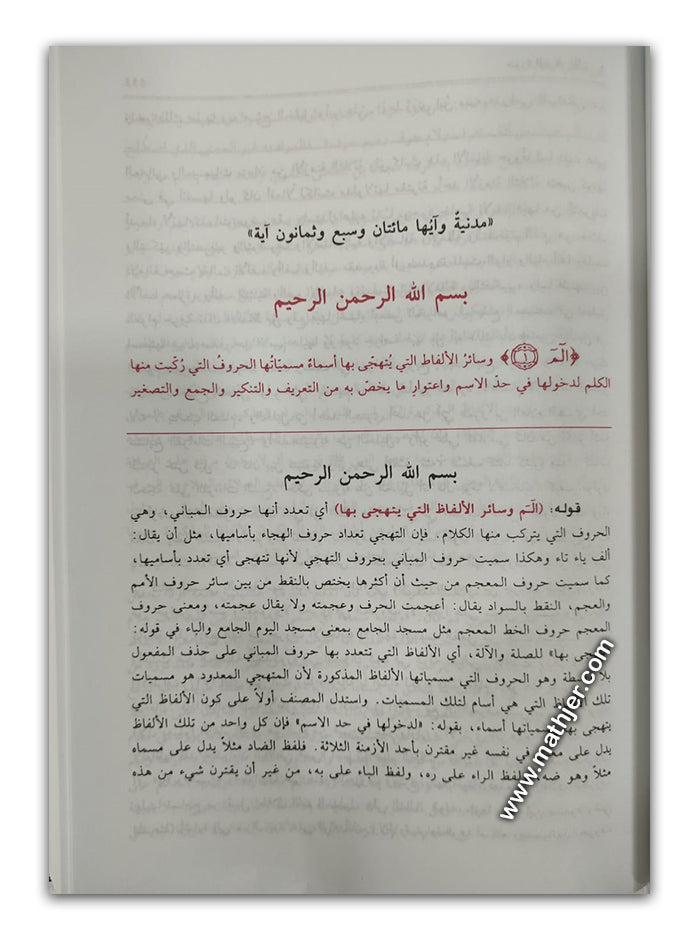 «مدنيةٌ وآيُها مائتان وسبع وثمانون آية»
بسم الله الرحمن الرحيم
﴿الٓمٓ ۝١﴾ وسائرُ الألفاظ التي يُتهجّى بها أسماءٌ مسميّاتُها الحروفُ التي ركّبت منها
الكلم لدخولها في حدّ الاسم واعتوارِ ما يخصّ به من التعريف والتنكير والجمع والتصغير
بسم الله الرحمن الرحيم
قوله: (الٓمٓ وسائر الألفاظ التي يتهجى بها) أي تعدد أنها حروف المباني، وهي
الحروف التي يتركب منها الكلام. فإن التهجي تعداد حروف الهجاء بأساميها، مثل أن يقال:
ألف ياء تاء وهكذا سميت حروف المباني بحروف التهجي لأنها تتهجى أي تعدد بأساميها،
كما سميت حروف المعجم من حيث أن أكثرها يختص بالنقط من بين سائر حروف الأمم
والعجم، النقط بالسواد يقال: أعجمت الحرف وعجمته ولا يقال عجمته، ومعنى حروف
المعجم حروف الخط المعجم مثل مسجد الجامع بمعنى مسجد اليوم الجامع والباء في قوله:
بها» للصلة والآلة، أي الألفاظ التي تتعدد بها حروف المباني على حذف المفعول
وهو الحروف التي مسمياتها الألفاظ المذكورة لأن المتهجي المعدود هو مسميات
تلك الألفاظ التي هي أسام لتلك المسميات. واستدل المصنف أولاً على كون الألفاظ التي
يتهجى بها مسمياتها أسماء، بقوله: «لدخولها في حد الاسم» فإن كل واحد من تلك الألفاظ
يدل على في نفسه غير مقترن بأحد الأزمنة الثلاثة. فلفظ الضاد مثلاً يدل على مسماه
مثلاً وهو ضه الراء على ره، ولفظ الباء على به، من غير أن يقترن شيء من هذه
www.mathjer.com